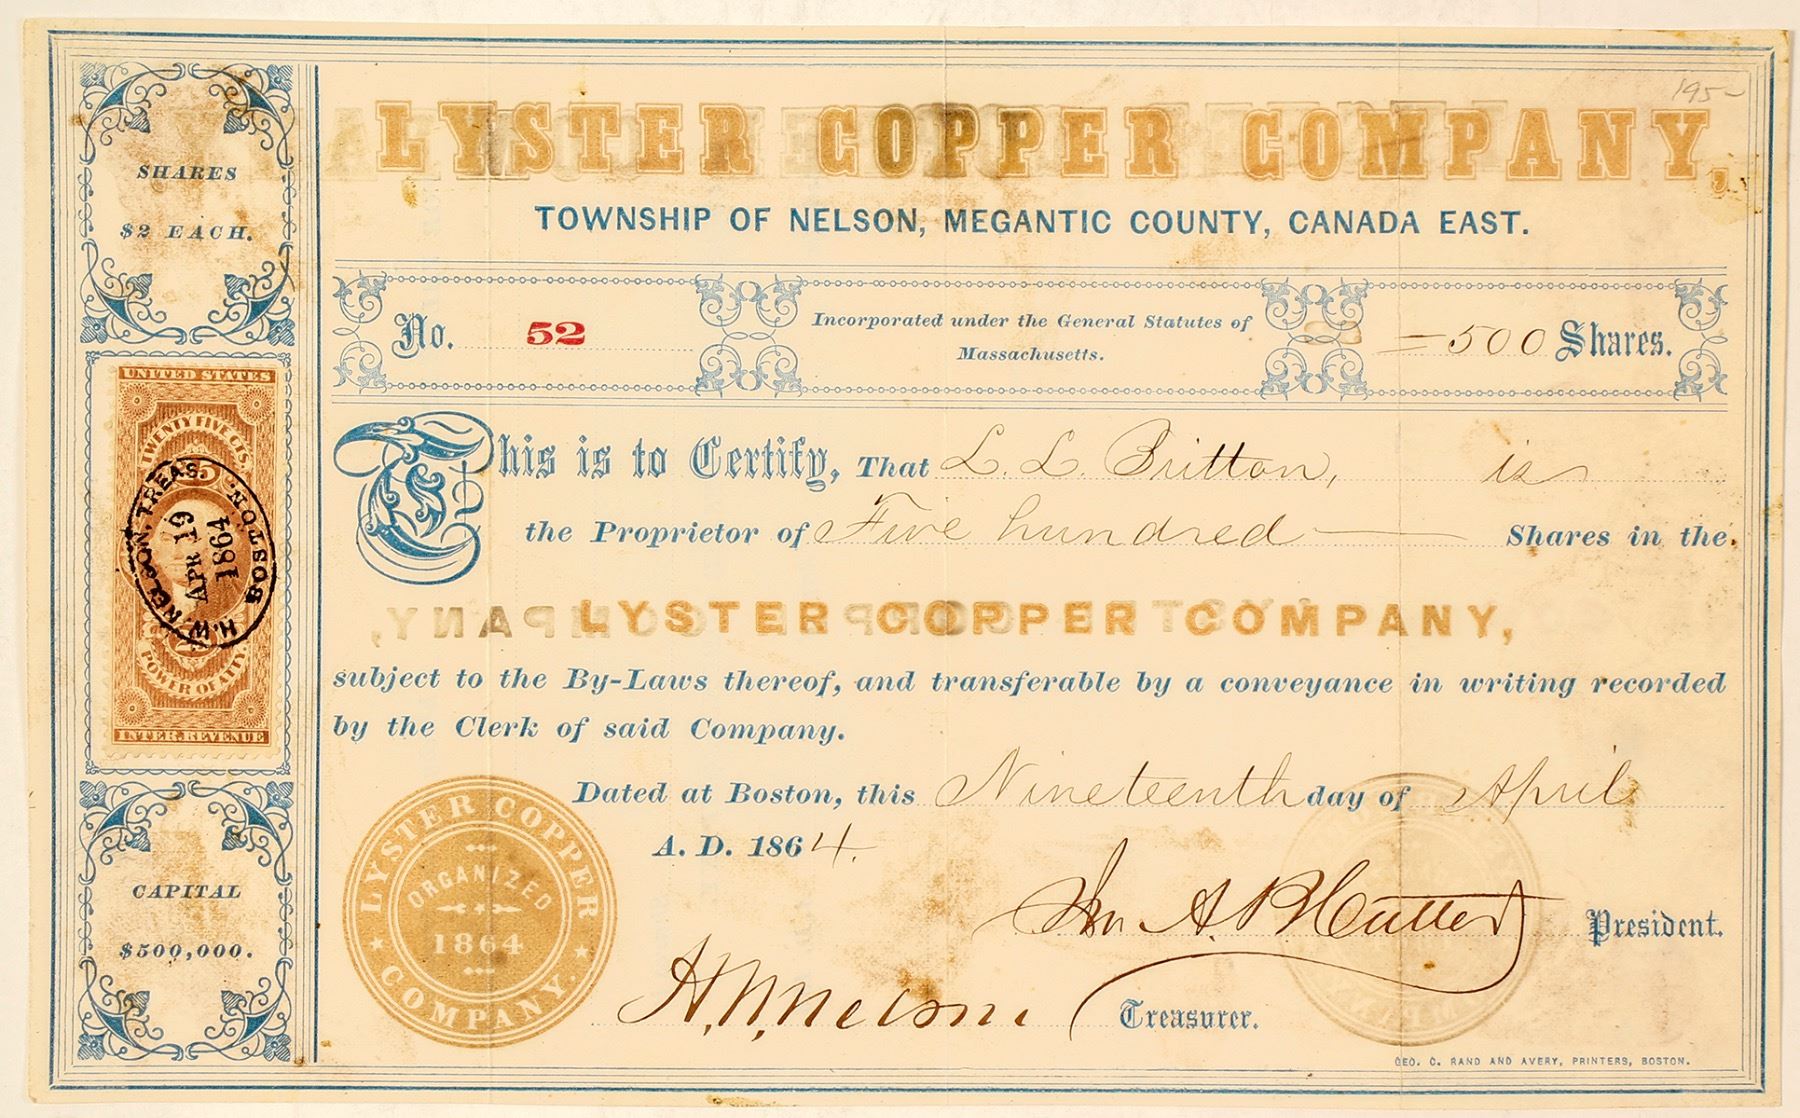 195-
LYSTER COPPER COMPANY,
TOWNSHIP OF NELSON, MEGANTIC COUNTY, CANADA EAST.
SHARES
$2 EACH.
No. 52
Incorporated under the General Statutes of
Massachusetts.
500 Shares.
This is to Certify, That L. L. Britton, is
the Proprietor of Five hundred Shares in the
LYSTER COPPER COMPANY,
subject to the By-Laws thereof, and transferable by a conveyance in writing recorded
by the Clerk of said Company.
Dated at Boston, this Nineteenth day of April
A. D. 1864.
UNITED STATES
TWENTY FIVE CTS.
25
H.W. NELSON, TREAS.
APR 19
1864
BOSTON.
POWER OF AT'Y.
INTER. REVENUE
CAPITAL
$500,000.
LYSTER COPPER
COMPANY.
ORGANIZED
1864
Jn A. P. Cutter President.
H. W. Nelson Treasurer.
GEO. C. RAND AND AVERY, PRINTERS, BOSTON.